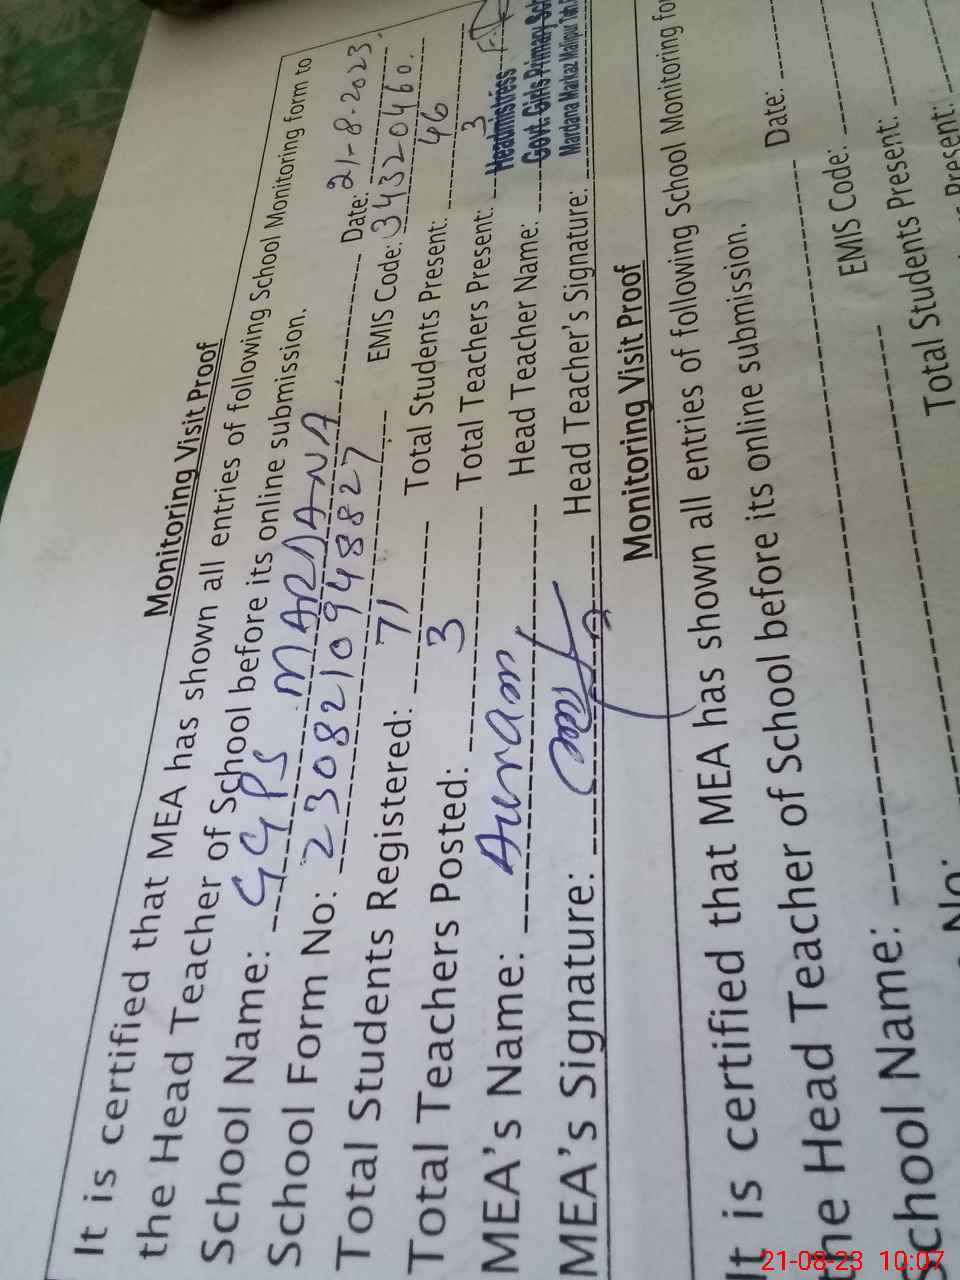 Monitoring Visit Proof
It is certified that MEA has shown all entries of following School Monitoring form to
the Head Teacher of School before its online submission.
School Name: GGPS MARDANA Date: 21-8-2023.
School Form No: 2308210948827 EMIS Code: 34320460.
Total Students Registered: 71 Total Students Present: 46
Total Teachers Posted: 3 Total Teachers Present: 3
MEA's Name: Head Teacher Name:
Headmistress
Govt. Girls Primary Sch
Mardana Markaz Malipur Teh.
MEA's Signature: Head Teacher's Signature:
Monitoring Visit Proof
It is certified that MEA has shown all entries of following School Monitoring fo
the Head Teacher of School before its online submission.
School Name: Date:
No: EMIS Code:
Total Students Present:
Present:
21-08-23 10:07